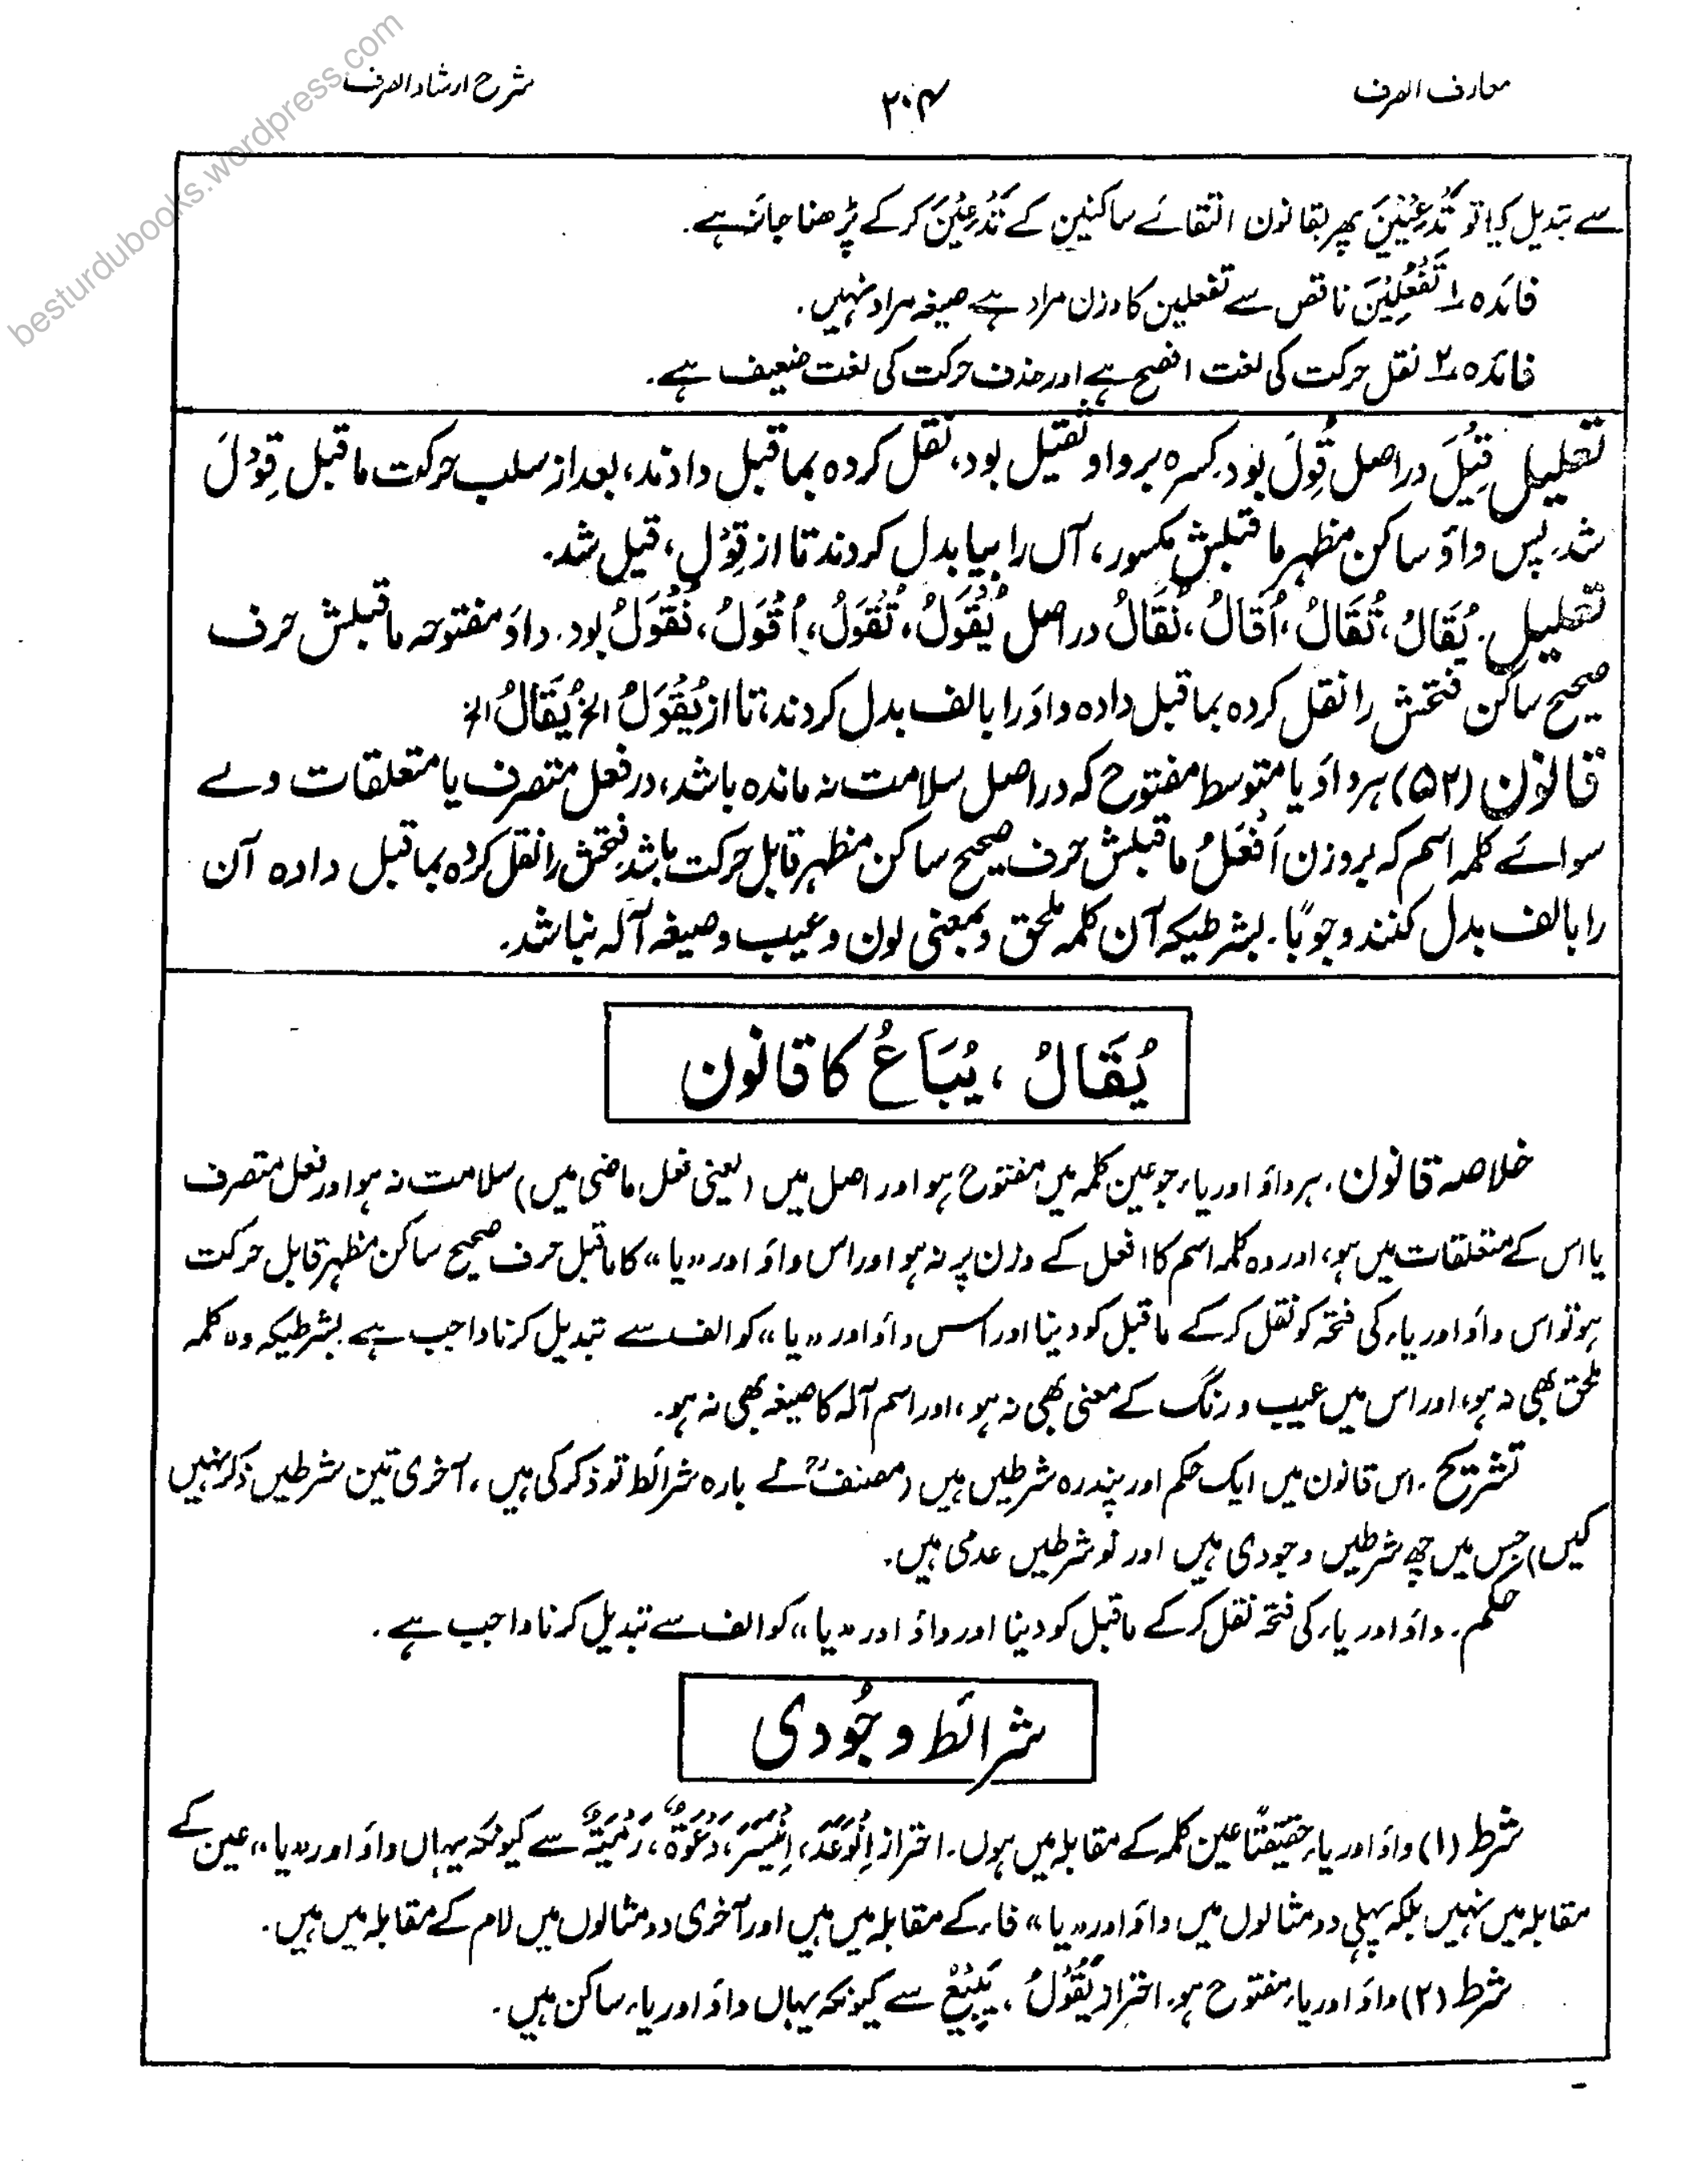 معارف الصرف
۲۰۴
شرح ارشاد الصرف
besturdubooks.wordpress.com
سے تبدیل کیا تو تُدْعِیْنَ پھر بقانون التقائے ساکنین کے تُدْعِیْنَ کر کے پڑھنا جائز ہے۔
فائدہ ۱ تَفْعُلِیْنَ ناقص سے تفعلین کا وزن مراد ہے صیغہ مراد نہیں۔
فائدہ ۲ نقل حرکت کی لغت افصح ہے اور حذف حرکت کی لغت ضعیف ہے۔
تعلیل قِیْلَ دراصل قُوِلَ بود کسرہ بر واو ثقیل بود، نقل کردہ بما قبل دادند، بعد از سلب حرکت ما قبل قِوْلَ
شد، پس واؤ ساکن مظہر ما قبلش مکسور، آں را بیا بدل کردند تا از قِوْل، قیل شد۔
تعلیل۔ یُقَالُ، تُقَالُ، اُقَالُ، نُقَالُ دراصل یُقْوَلُ، تُقْوَلُ، اُقْوَلُ، نُقْوَلُ بود۔ واؤ مفتوحہ ما قبلش حرف
صحیح ساکن فتحش را نقل کردہ بما قبل دادہ واؤ را بالف بدل کردند، تا از یُقْوَلُ الخ یُقَالُ الخ
قانون (۵۲) ہر واؤ یا متوسط مفتوح کہ دراصل سلامت نہ ماندہ باشد، در فعل متصرف یا متعلقات وے
سوائے کلمہ اسم کہ بر وزن اَفْعَلُ ما قبلش حرف صحیح ساکن مظہر قابل حرکت باشد فتحش را نقل کردہ بما قبل دادہ آن
را بالف بدل کنند وجوبًا۔ بشرطیکہ آن کلمہ ملحق و بمعنی لون و عیب و صیغہ آلہ نباشد۔
یُقَالُ ، یُبَاعُ کا قانون
خلاصہ قانون۔ ہر واؤ اور یاء جو عین کلمہ میں مفتوح ہو اور اصل میں (یعنی فعل ماضی میں) سلامت نہ ہو اور فعل متصرف
یا اس کے متعلقات میں ہو، اور وہ کلمہ اسم کا افعل کے وزن پر نہ ہو اور اس واؤ اور ”یا“ کا ما قبل حرف صحیح ساکن مظہر قابل حرکت
ہو تو اس واؤ اور یاء کی فتحہ کو نقل کر کے ما قبل کو دینا اور اس واؤ اور ”یا“ کو الف سے تبدیل کرنا واجب ہے بشرطیکہ وہ کلمہ
ملحق بھی نہ ہو، اور اس میں عیب و رنگ کے معنی بھی نہ ہو، اور اسم آلہ کا صیغہ بھی نہ ہو۔
تشریح۔ اس قانون میں ایک حکم اور پندرہ شرطیں ہیں (مصنفؒ نے بارہ شرائط تو ذکر کی ہیں، آخری تین شرطیں ذکر نہیں
کیں) جس میں چھ شرطیں وجودی ہیں اور نو شرطیں عدمی ہیں۔
حکم۔ واؤ اور یاء کی فتحہ نقل کر کے ما قبل کو دینا اور واؤ اور ”یا“ کو الف سے تبدیل کرنا واجب ہے۔
شرائط وجُودی
شرط (۱) واؤ اور یاء حقیقتًا عین کلمہ کے مقابلہ میں ہوں۔ احتراز اِوْتَعَدَ، اِیْتَسَرَ، دَعْوَةٌ، رَمْیَةٌ سے کیونکہ یہاں واؤ اور ”یا“ عین کے
مقابلہ میں نہیں بلکہ پہلی دو مثالوں میں واؤ اور ”یا“ فاء کے مقابلہ میں ہیں اور آخری دو مثالوں میں لام کے مقابلہ میں ہیں۔
شرط (۲) واؤ اور یاء مفتوح ہو۔ احتراز یَقُوْلُ ، یَبِیْعُ سے کیونکہ یہاں واؤ اور یاء ساکن ہیں۔